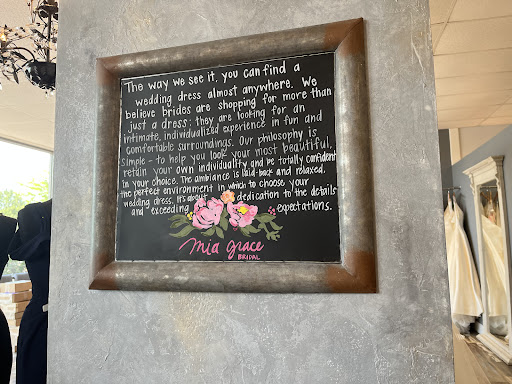 The way we see it, you can find a
wedding dress almost anywhere. We
believe brides are shopping for more than
just a dress: they are looking for an
intimate, individualized experience in fun and
comfortable surroundings. Our philosophy is
simple - to help you look your most beautiful,
retain your own individuality and be totally confident
in your choice. The ambiance is laid-back and relaxed.
The perfect environment in which to choose your
wedding dress. It's about dedication to the details
and exceeding expectations.
mia grace
BRIDAL